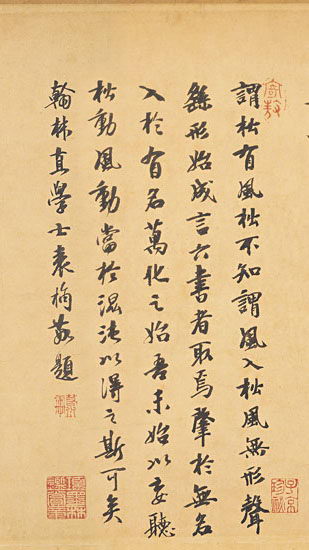 謂松有風松不知謂風入松風無形聲
繇形始成言六書者取焉肇於無名
入於有名萬化之始吾未始以妄聽
松動風動當於混沌以得之斯可矣
翰林直學士袁桷敬題